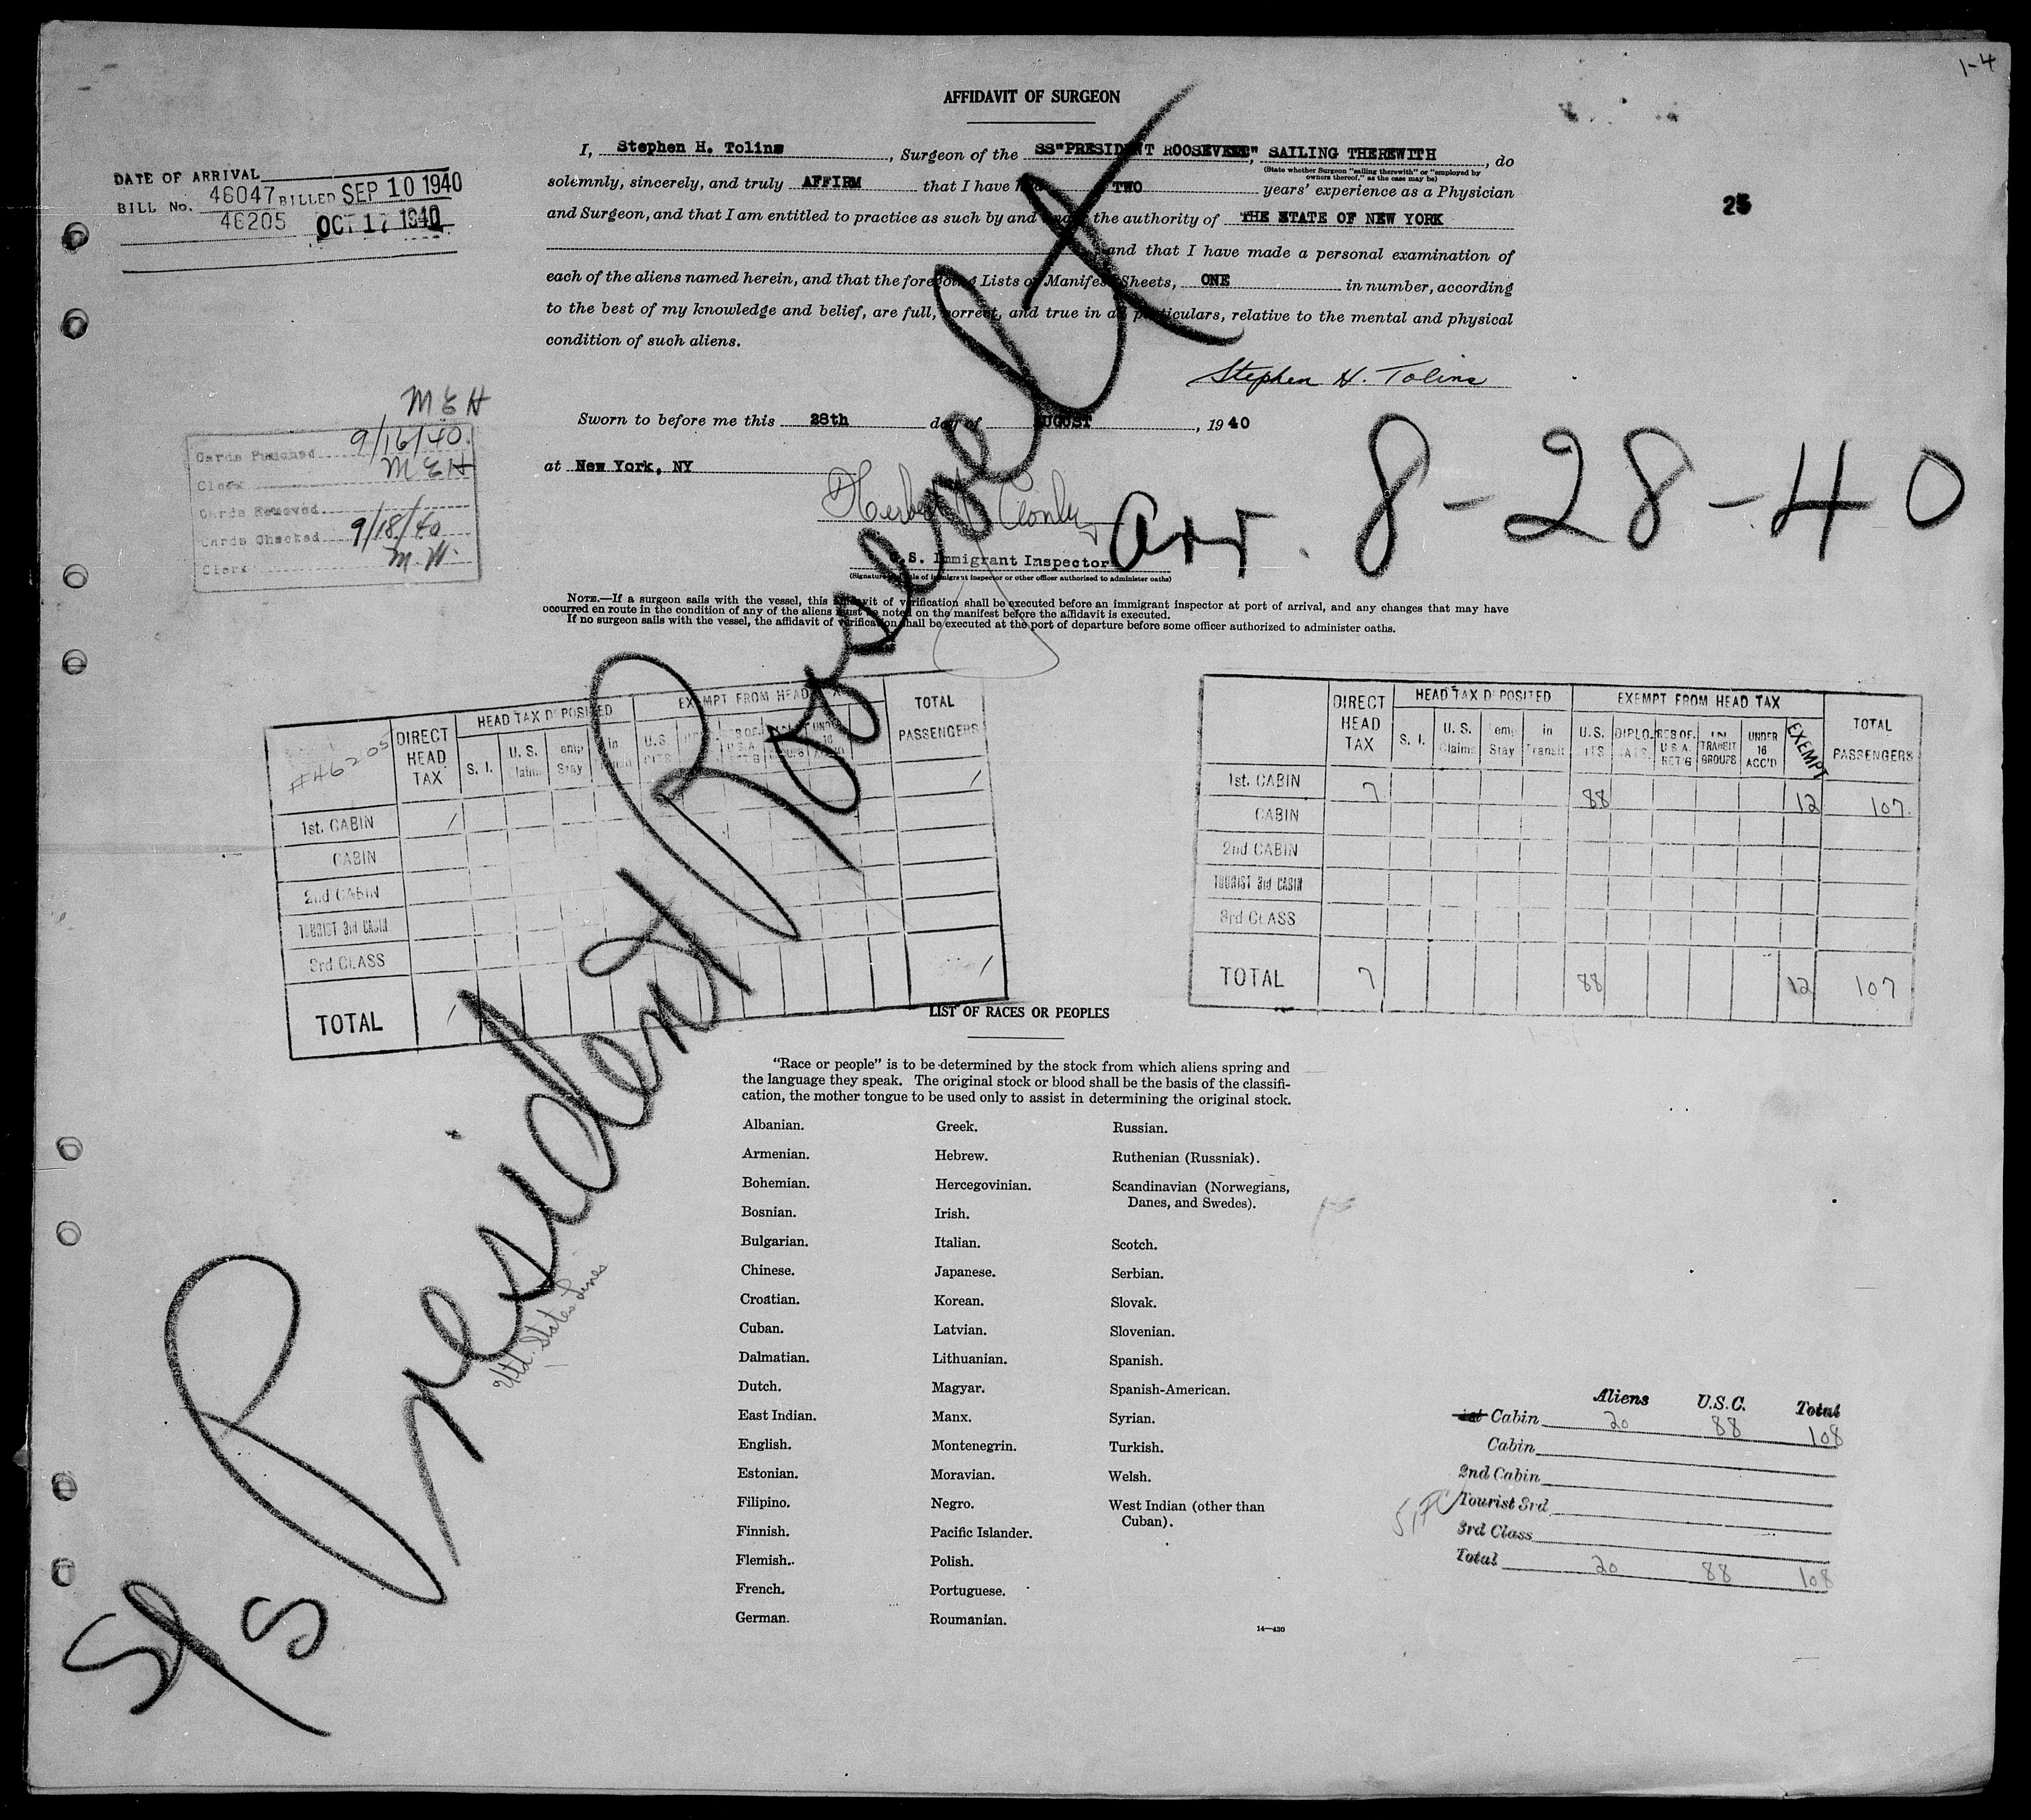 1-4
AFFIDAVIT OF SURGEON
I, Stephen H. Tolins, Surgeon of the SS"PRESIDENT ROOSEVELT," SAILING THEREWITH, do
(State whether Surgeon "sailing therewith" or "employed by
owners thereof," as the case may be)
solemnly, sincerely, and truly AFFIRM that I have had TWO years' experience as a Physician
and Surgeon, and that I am entitled to practice as such by and under the authority of THE STATE OF NEW YORK
and that I have made a personal examination of
each of the aliens named herein, and that the foregoing Lists or Manifest Sheets, ONE in number, according
to the best of my knowledge and belief, are full, correct, and true in all particulars, relative to the mental and physical
condition of such aliens.
Stephen H. Tolins
Sworn to before me this 28th day of AUGUST, 1940
at New York, NY
U.S. Immigrant Inspector
(Signature and title of immigrant inspector or other officer authorized to administer oaths)
NOTE.—If a surgeon sails with the vessel, this affidavit of verification shall be executed before an immigrant inspector at port of arrival, and any changes that may have
occurred en route in the condition of any of the aliens must be noted on the manifest before the affidavit is executed.
If no surgeon sails with the vessel, the affidavit of verification shall be executed at the port of departure before some officer authorized to administer oaths.
DATE OF ARRIVAL
BILL No. 46047 BILLED SEP 10 1940
46205 OCT 17 1940
25
M E H
Cards Punched 9/16/40
Clerk M E H
Cards Removed
Cards Checked 9/18/40
Clerk M.W.
arr. 8-28-40
S/S President Roosevelt
Utd. States Lines
#46205
DIRECT HEAD TAX
HEAD TAX DEPOSITED
S. I.
U. S. Claims
Temp Stay
in Transit
EXEMPT FROM HEAD TAX
TOTAL PASSENGERS
1st. CABIN 1 1
CABIN
2nd CABIN
TOURIST 3rd CABIN
3rd CLASS
TOTAL 1 1
DIRECT HEAD TAX
HEAD TAX DEPOSITED
S. I.
U. S. Claims
Temp Stay
in Transit
EXEMPT FROM HEAD TAX
U.S. CITS
DIPLOMATS
RES OF. U S A. RET'G
IN TRANSIT GROUPS
UNDER 16 ACC'D
EXEMPT
TOTAL PASSENGERS
1st. CABIN 7 88 12 107
CABIN
2nd CABIN
TOURIST 3rd CABIN
3rd CLASS
TOTAL 7 88 12 107
LIST OF RACES OR PEOPLES
"Race or people" is to be determined by the stock from which aliens spring and
the language they speak. The original stock or blood shall be the basis of the classifi-
cation, the mother tongue to be used only to assist in determining the original stock.
Albanian.
Armenian.
Bohemian.
Bosnian.
Bulgarian.
Chinese.
Croatian.
Cuban.
Dalmatian.
Dutch.
East Indian.
English.
Estonian.
Filipino.
Finnish.
Flemish.
French.
German.
Greek.
Hebrew.
Hercegovinian.
Irish.
Italian.
Japanese.
Korean.
Latvian.
Lithuanian.
Magyar.
Manx.
Montenegrin.
Moravian.
Negro.
Pacific Islander.
Polish.
Portuguese.
Roumanian.
Russian.
Ruthenian (Russniak).
Scandinavian (Norwegians,
Danes, and Swedes).
Scotch.
Serbian.
Slovak.
Slovenian.
Spanish.
Spanish-American.
Syrian.
Turkish.
Welsh.
West Indian (other than
Cuban).
14—430
Aliens U.S.C. Total
1st Cabin 20 88 108
Cabin
2nd Cabin
Tourist 3rd
3rd Class
Total 20 88 108